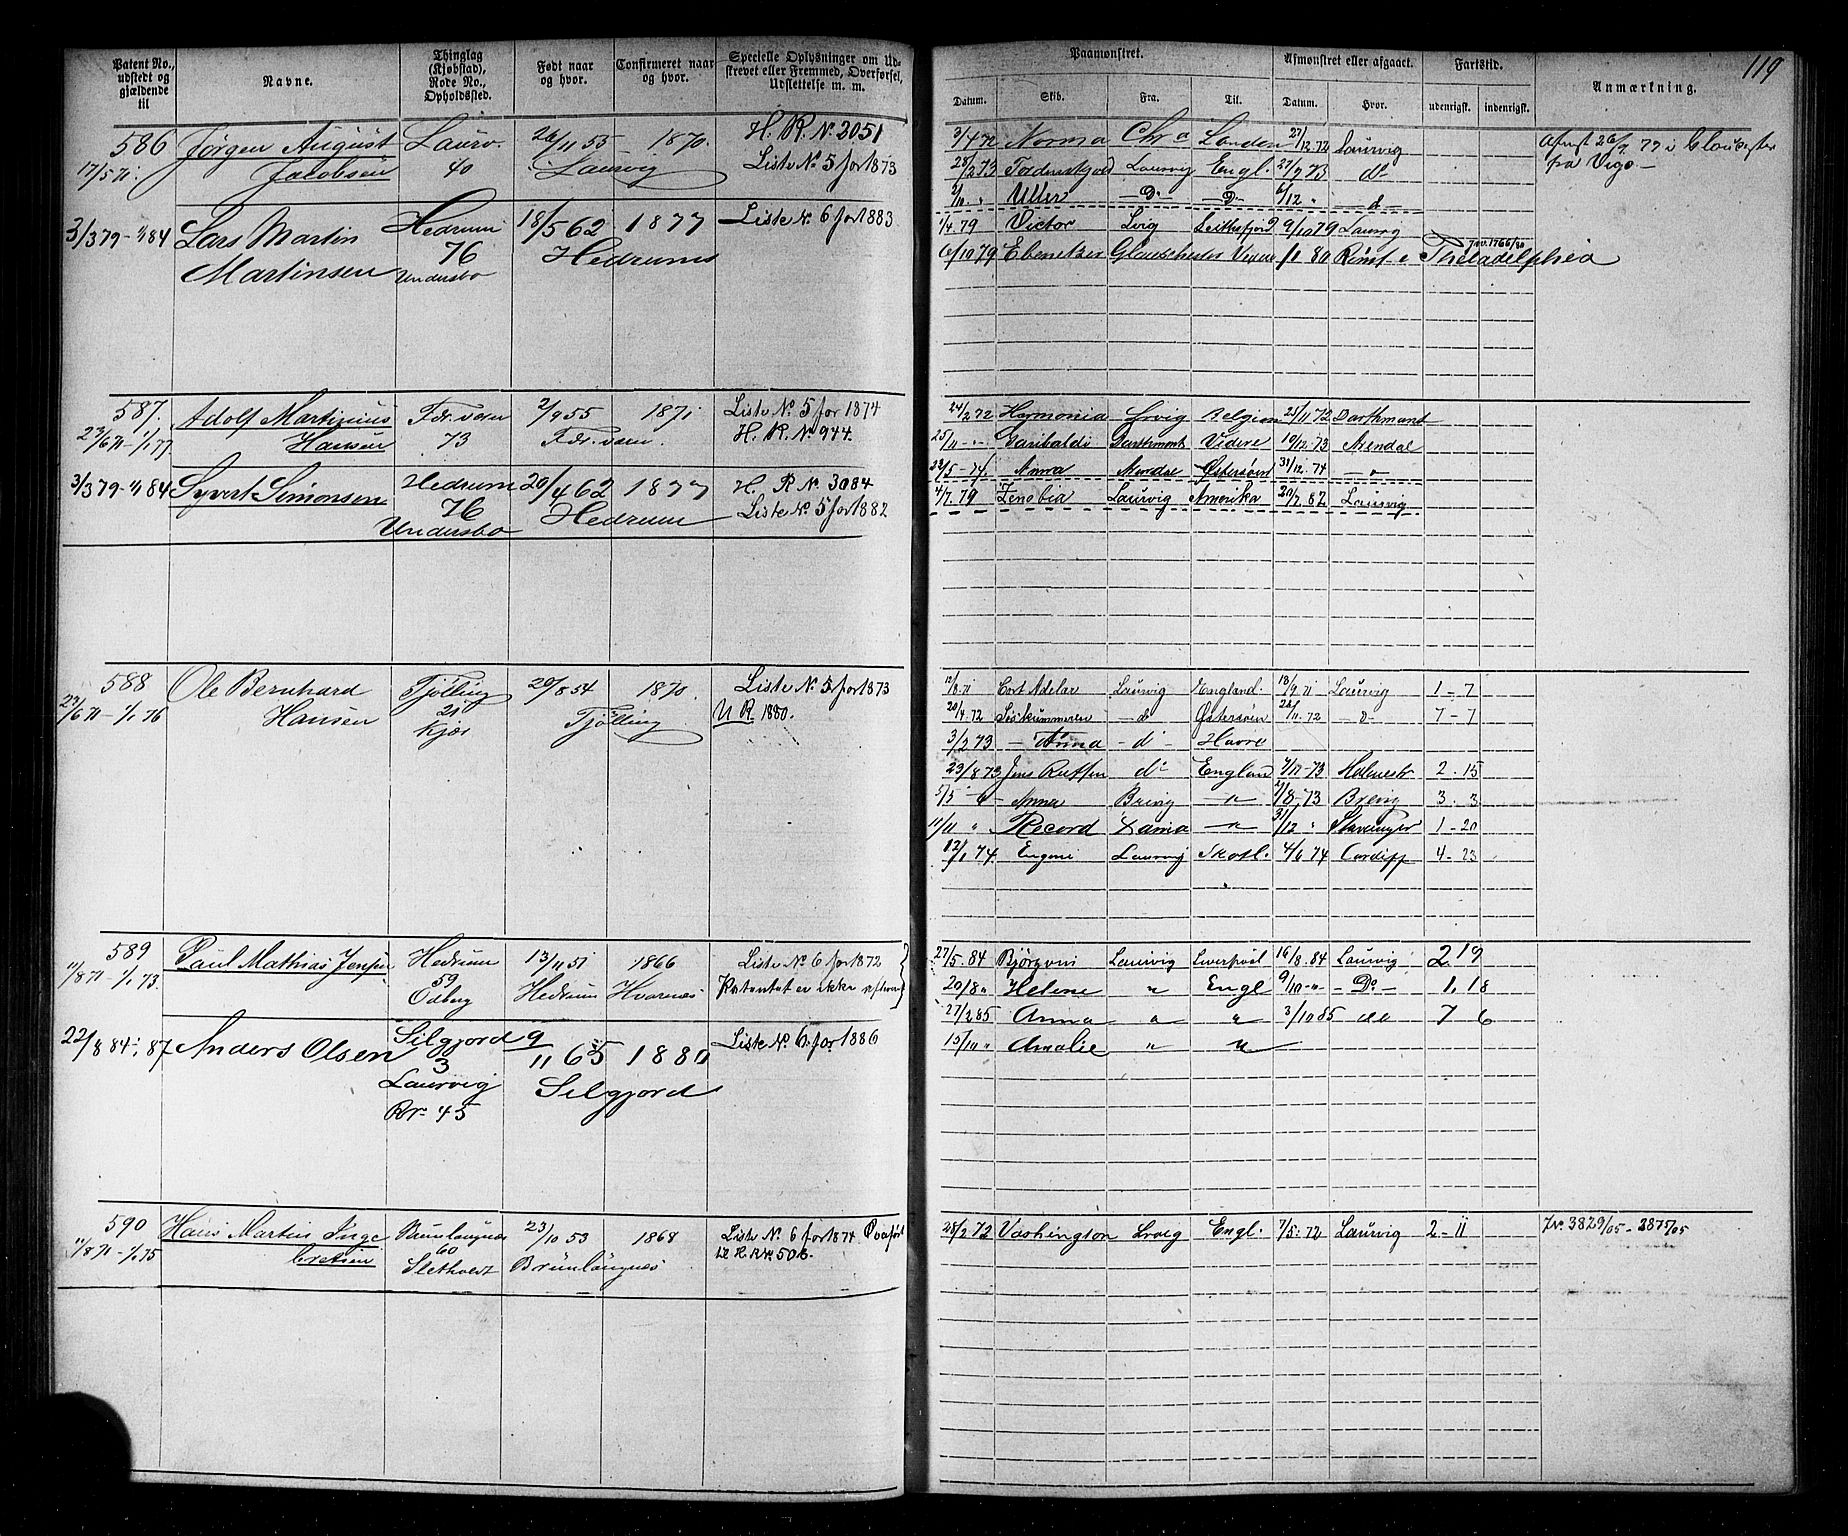 119
Patent No., udstedt og gjældende til
Navne.
Thinglag (Kjøbstad), Rode No., Opholdssted.
Født naar og hvor.
Confirmeret naar og hvor.
Specielle Oplysninger om Udskrevet eller Fremmed, Overførsel, Udslettelse m. m.
Paamønstret.
Afmønstret eller afgaaet.
Fartstid.
Anmærkning.
Datum. Skib. Fra. Til. Datum. Hvor. udenrigsk. indenrigsk.
586 Jørgen August Laurv. 26/11 55 1870. H. R. No 2051
17/5 71 Jacobsen 40 Laurvig Liste No 5 for 1873
3/4 72 Norma Chra London 27/12.72 Laurvig
28/2 73 Tordenskjold Laurvig Engl. 27/7 73 do
Uller Do Do 6/12 " d
fra Vigo
3/3 79 - 1/1 84 Lars Martin Hedrum 18/5 62 1877 Liste No 6 for 1883
Martinsen 76 Hedrum
Undersbo
1/4 79 Victor Lvig 9/10 79 Laurvig
6/10 79 Ebenetzer 80 Rømt i Philadelphia
587. Adolf Martinius Fdr.værn 2/9 55 1871 Liste No 5 for 1874
23/6 71 - 1/1 77 Hansen 73 Fdr.værn. H. R. No 944.
24/2 72 Harmonia Lrvig Belgien 25/11 72 Darthmouth
25/11 - " - Garibaldi Darthmont Videre 19/12 73 Arendal
22/5 - 74 Anna Arendal Østersøen 31/12.74
3/3 79 - 1/1 84 Syvert Simonsen Hedrum 20/4 62 1877 H. R No 3084
76 Hedrum Liste No 5 for 1882
Undersbo
4/7.79 Zenobia Laurvig Amerika 20/7.82 Laurvig
588 Ole Bernhard Tjølling 20/8 54 1870. Liste No 5 for 1873
23/6 71 - 1/1 76 Hansen 21 Tjølling U R. 1880.
Kjær
12/8.71 Cort Adelar Laurvig England. 18/9.71 Laurvig 1 - 7
20/4.72 d Østersøen 22/11.72 d 7 - 7
3/2 73 Anna d Havre
23/8 73 Jens do England 7/11 - 73 Holmestr 2 . 15
Anna Brevig " 8.73 Brevig 3 . 3
11/11 " Record " 31/12 " Stavanger 1 - 20
12/1 74 Eugeni Laurvig Skotl. 4/6 74 Cardiff 4 - 23
589 Paul Mathias Jensen Hedrum 13/11 51 1866 Liste No 6 for 1872
11/8 71 - 1/1 73. 59 Hedrum Hvarnæs Patentet er ikke
Odberg
27/5.84 Bjørgvin Laurvig Liverpool 16/8.84 Laurvig 2 19
20/8 " Helene " Engl 9/10 - " - Do 1, 18
27/2 85 Anna " " 3/10 85 do 7 6
22/8 84 - 87 Anders Olsen Silgjord 9/11 65 1880 Liste No 6 for 1886
3 Silgjord
Laurvig
Rr. 45
15/10 " Amalie " "
590 Hans Martin Inge- Brunlaugnæs 23/10 53 1868 Liste No 6 for 1874
11/8 71 - 1/1 75 bretsen 60 Brunlaugnæs H. R. No 508.
28/2 72 Vashington Lrvig Engl. 7/5.72 Laurvig 2 - 11
Jno 3829/05 - 3875/05